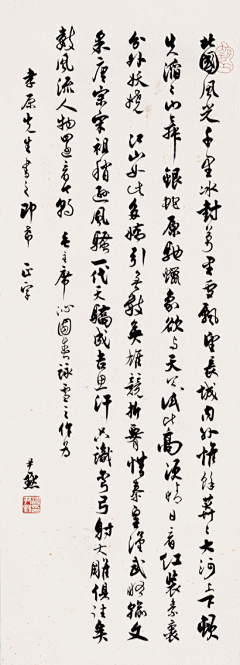 北國風光千里冰封萬里雪飄望長城内外惟餘莽莽大河上下頓
失滔滔山舞銀蛇原馳蠟象欲与天公試比高須晴日看紅裝素裹
分外妖嬈 江山如此多嬌引无數英雄競折腰惜秦皇漢武略輸文
采唐宗宋祖稍遜風騷一代天驕成吉思汗只識彎弓射大雕俱往矣
數風流人物還看今朝 毛主席沁園春詠雪之作為
聿原先生書之即希 正字
尹默